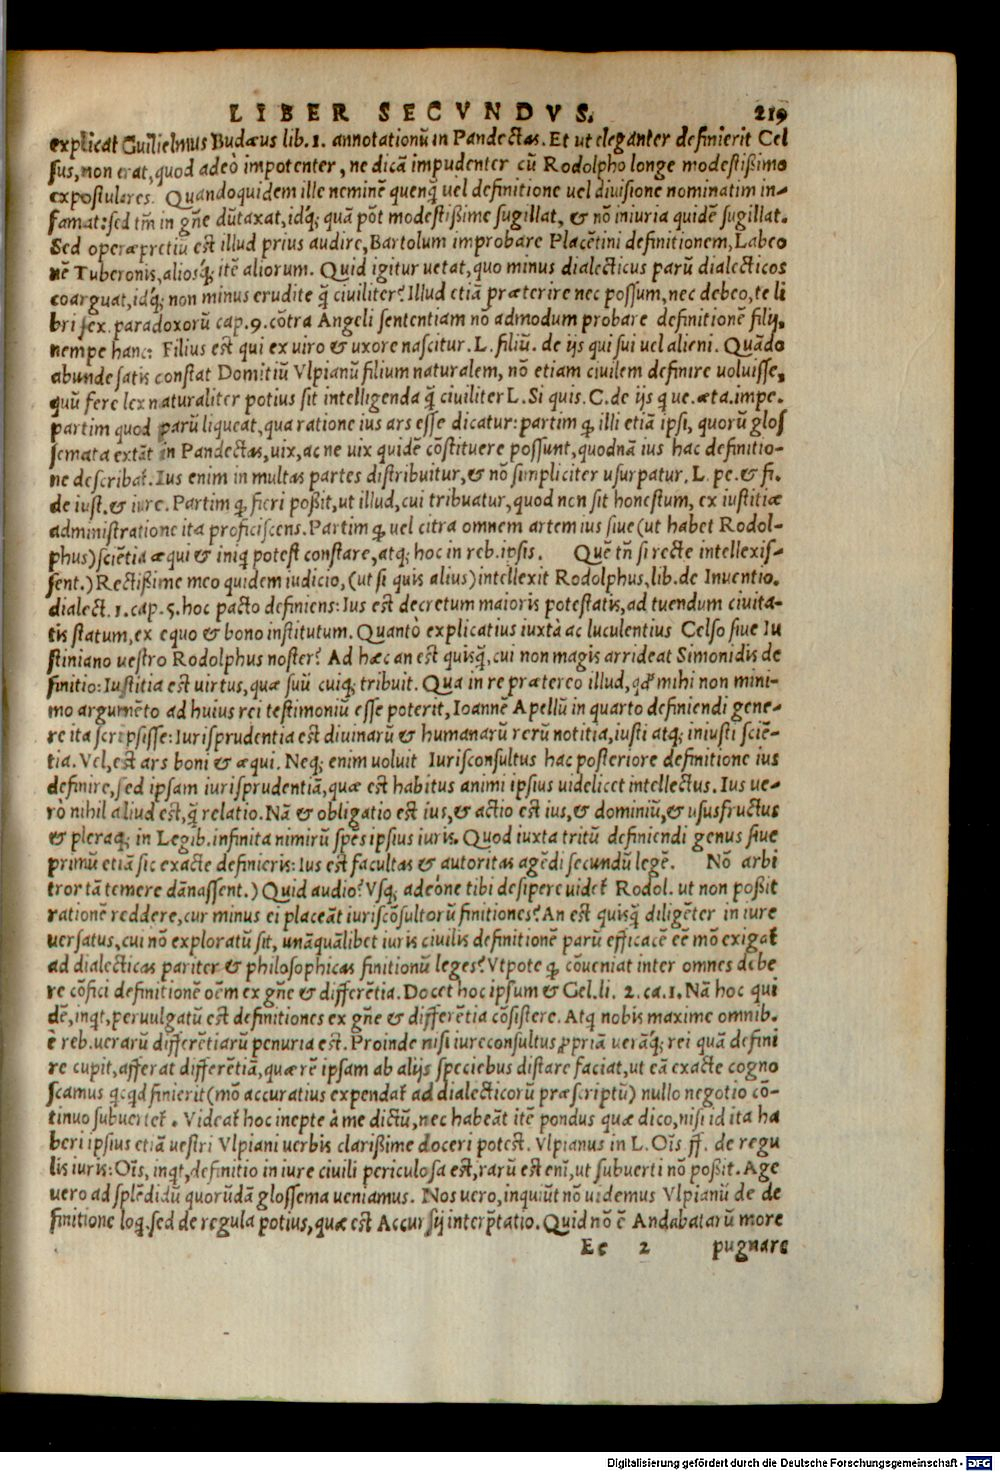 LIBER SECVNDVS. 219
explicat Guilielmus Budæus lib. 1. annotationũ in Pandectas. Et ut eleganter definierit Cel
sus, non erat, quod adeò impotenter, ne dicã impudenter cũ Rodolpho longe modestißimo
expostulares. Quandoquidem ille neminẽ quenq̃ uel definitione uel diuisione nominatim in-
famat: sed tm̃ in gñe dũtaxat, idq; quã põt modestißime sugillat, & nõ iniuria quidẽ sugillat.
Sed operæpretiũ est illud prius audire, Bartolum improbare Placẽtini definitionem, Labeo
nẽ Tuberonis, aliosq́; itẽ aliorum. Quid igitur uetat, quo minus dialecticus parũ dialecticos
coarguat, idq́; non minus erudite q̃ ciuiliter? Illud etiã præterire nec possum, nec debeo, te li
bri sex. paradoxorũ cap. 9. cõtra Angeli sententiam nõ admodum probare definitionẽ filij,
nempe hanc: Filius est qui ex uiro & uxore nascitur. L. filiũ. de ijs qui sui uel alieni. Quãdo
abunde satis constat Domitiũ Vlpianũ filium naturalem, nõ etiam ciuilem definire uoluisse,
quũ fere lex naturaliter potius sit intelligenda q̃ ciuiliter L. Si quis. C. de ijs q ue. æta. impe.
partim quod parũ liqueat, qua ratione ius ars esse dicatur: partim q̃ illi etiã ipsi, quorũ glos
semata extãt in Pandectas, uix, ac ne uix quidẽ cõstituere possunt, quodnã ius hac definitio-
ne describat̃. Ius enim in multas partes distribuitur, & nõ simpliciter usurpatur. L. pe. & fi.
de iust. & iure. Partim q̃ fieri poßit, ut illud, cui tribuatur, quod non sit honestum, ex iustitiæ
administratione ita proficiscens. Partim q̃ uel citra omnem artem ius siue (ut habet Rodol-
phus) sciẽtia æqui & iniqui potest constare, atq; hoc in reb. ipsis. Quẽ tñ si recte intellexis-
sent.) Rectißime meo quidem iudicio, (ut si quis alius) intellexit Rodolphus, lib. de Inuentio.
dialect. 1. cap. 5. hoc pacto definiens: Ius est decretum maioris potestatis, ad tuendum ciuita-
tis statum, ex equo & bono institutum. Quantò explicatius iuxtà ac luculentius Celso siue Iu
stiniano uestro Rodolphus noster? Ad hæc an est quisq̃, cui non magis arrideat Simonidis de
finitio: Iustitia est uirtus, quæ suũ cuiq; tribuit. Qua in re prætereo illud, qđ mihi non mini-
mo argumẽto ad huius rei testimoniũ esse poterit, Ioannẽ Apellũ in quarto definiendi gene-
re ita scripsisse: Iurisprudentia est diuinarũ & humanarũ rerũ notitia, iusti atq; iniusti sciẽ-
tia. Vel, est ars boni & æqui. Neq; enim uoluit Iurisconsultus hac posteriore definitione ius
definire, sed ipsam iurisprudentiã, quæ est habitus animi ipsius uidelicet intellectus. Ius ue-
rò nihil aliud est, q̃ relatio. Nã & obligatio est ius, & actio est ius, & dominiũ, & ususfructus
& pleraq; in Legib. infinita nimirũ spẽs ipsius iuris. Quod iuxta tritũ definiendi genus siue
primũ etiã sic exacte definieris: Ius est facultas & autoritas agẽdi secundũ legẽ. Nõ arbi
tror tã temere dãnassent.) Quid audio? Vsq; adeóne tibi desipere uidet̃ Rodol. ut non poßit
rationẽ reddere, cur minus ei placeãt iuriscõsultorũ finitiones? An est quisq̃ diligẽter in iure
uersatus, cui nõ exploratũ sit, unãquãlibet iuris ciuilis definitionẽ parũ efficacẽ eẽ mõ exigat̃
ad dialecticas pariter & philosophicas finitionũ leges? Vtpote q̃ cõueniat inter omnes debe
re cõfici definitionẽ oẽm ex gñe & differẽtia. Docet hoc ipsum & Gel. li. 2. ca. 1. Nã hoc qui
dẽ, inqt, peruulgatũ est definitiones ex gñe & differẽtia cõsistere. Atq nobis maxime omnib.
è reb. uerarũ differẽtiarũ penuria est. Proinde nisi iureconsultus ꝓpriã uerãq́; rei quã defini
re cupit, afferat differẽtiã, quæ rẽ ipsam ab alijs speciebus distare faciat, ut eã exacte cogno
scamus qcqd finierit (mõ accuratius expendat̃ ad dialecticorũ præscriptũ) nullo negotio cõ-
tinuo subuertet̃. Videat̃ hoc inepte à me dictũ, nec habeãt itẽ pondus quæ dico, nisi id ita ha
beri ipsius etiã uestri Vlpiani uerbis clarißime doceri potest. Vlpianus in L. Oĩs ff. de regu
lis iuris: Oĩs, inqt, definitio in iure ciuili periculosa est, rarũ est enĩ, ut subuerti nõ poßit. Age
uero ad splẽdidũ quorũdã glossema ueniamus. Nos uero, inquiũt nõ uidemus Vlpianũ de de
finitione loq̃. sed de regula potius, quæ est Accursij interp̃tatio. Quid nõ ẽ Andabatarũ more
Ee 2 pugnare
Digitalisierung gefördert durch die Deutsche Forschungsgemeinschaft - DFG